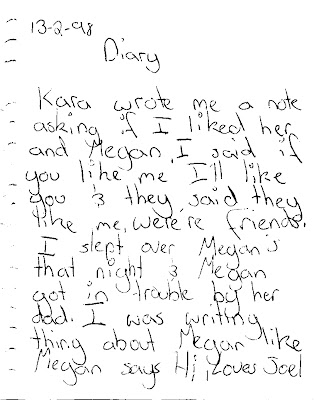 13-2-98
Diary
Kara wrote me a note
asking if I liked her
and Megan, I said if
you like me I'll like
you & they said they
like me, were're friends.
I slept over Megan's
that night & Megan
got in trouble by her
dad. I was writing
thing about Megan like
Megan says Hi, Loves Joel